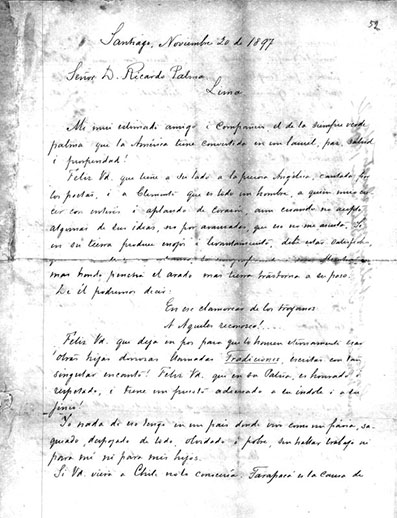 52
Santiago, Noviembre 20 de 1897
Señor D. Ricardo Palma
Lima
Mi mui estimado amigo i compañero el de la siempre verde
palma que la América tiene convertida en un laurel, paz, salud
i prosperidad!
Feliz Vd. que tiene a su lado a la Angélica, cantada por
los poetas, i a Clemente que es todo un hombre, a quien
con interés i aplaudo de corazon, aun cuando no acepto
algunas de sus ideas, no por avanzadas, que eso no me asusta. Si
en su tierra produce enojos i levantamiento, debe estar satisfecho,
mas hondo penetra el arado mas tierra trastorna a su paso.
De él podremos decir:
En ese clamoreo de los troyanos
A Aquiles reconozco!....
Feliz Vd. que deja en pos para que lo honren eternamente esas
otras hijas donosas llamadas Tradiciones, escritas con tan
singular encanto! Feliz Vd. que en su Patria, es honrado i
respetado, i tiene un puesto adecuado a su índole i a su
jenio.
Yo nada de eso tengo en un pais donde vivo como un pária, sa-
queado, despojado de todo, olvidado i pobre, sin hallar trabajo ni
para mí ni para mis hijos.
Si Vd. viera a Chile no lo conoceria. Tarapacá es la causa de